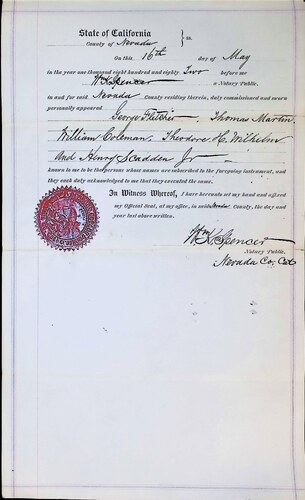 State of California
County of Nevada } ss.
On this 16th day of May
in the year one thousand eight hundred and eighty Two before me
W. K. Spencer a Notary Public,
in and for said Nevada County residing therein, duly commissioned and sworn
personally appeared
George Fletcher, Thomas Martin,
William Coleman, Theodore H. Wilhelm
and Henry Scadden Jr
known to me to be the persons whose names are subscribed to the foregoing instrument, and
they each duly acknowledged to me that they executed the same.
In Witness Whereof, I have hereunto set my hand and affixed
my Official Seal, at my office, in said Nevada County, the day and
year last above written.
Wm K. Spencer
Notary Public.
Nevada Co.